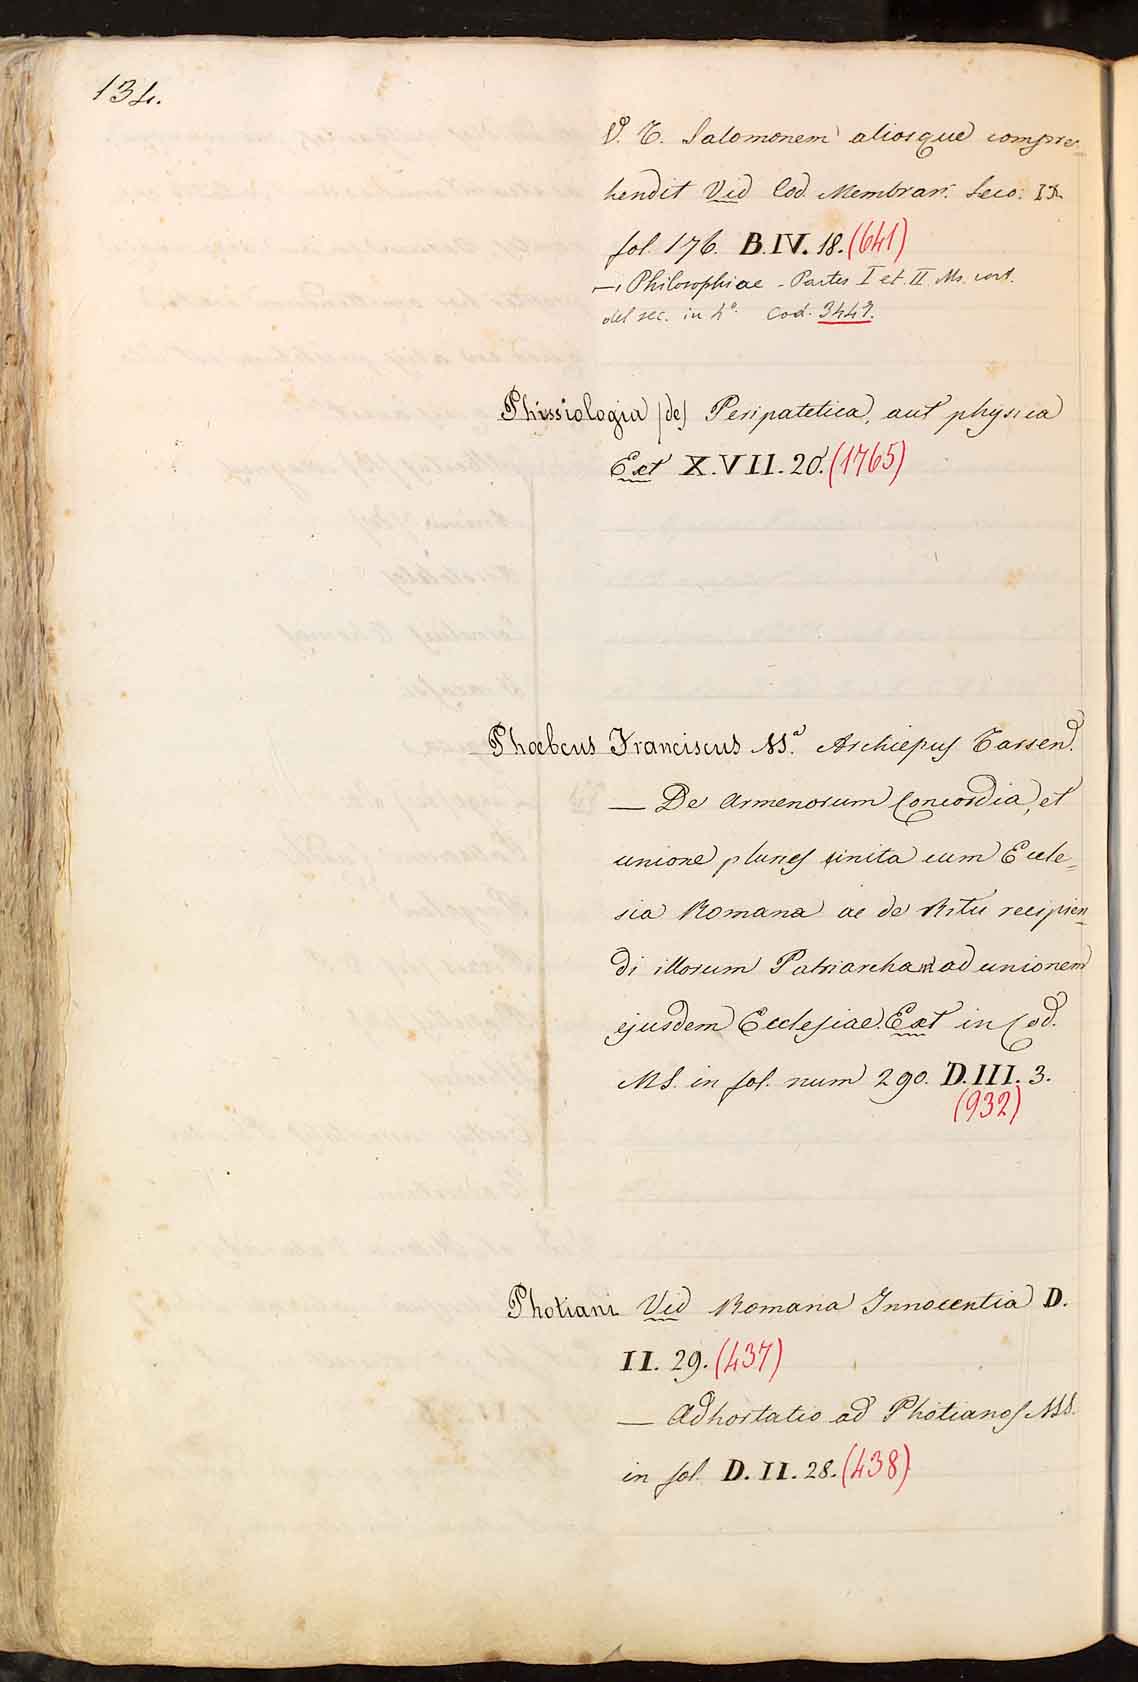 134.
V. T. Salomonem aliosque compre=
hendit Vid Cod. Membran. Seco: IX
fol. 176. B.IV. 18. (641)
— Philosophiae - Partes I et II Ms. cart.
del sec. in 4º. Cod. 3447.
Phissiologia (de) Peripatetica, aut physica
Ext X.VII.20. (1765)
Phoebeus Franciscus MS. Archiepus Tarsen.
— De Armenorum Concordia, et
unione plunes sinita cum Eccle=
sia Romana ac de Ritu recipien=
di illorum Patriarcham ad unionem
ejusdem Ecclesiae. Ext in Cod.
MS. in fol. num 290. D.III. 3.
(932)
Photiani Vid Romana Innocentia D.
II. 29. (437)
— Adhortatio ad Photianos MS.
in fol. D. II. 28. (438)